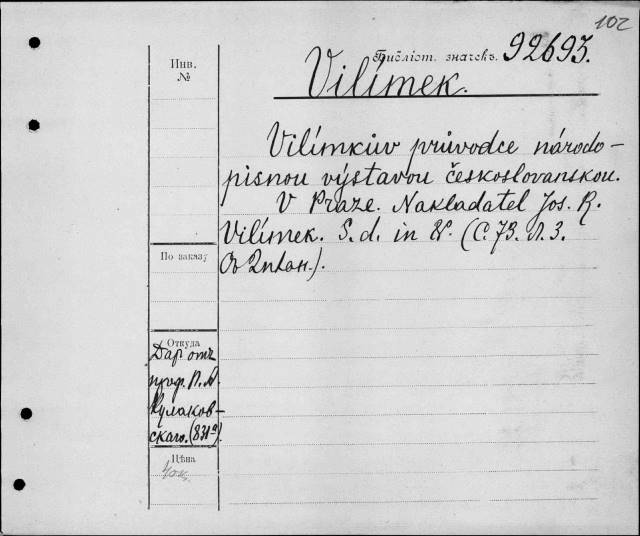 102
Инв.
№
Библіот. значекъ. 92693.
Vilímek.
Vilímkův průvodce národo-
pisnou výstavou českoslovanskou.
V Praze. Nakladatel Jos. R.
Vilímek. S. d. in 8°. (С. 73. Л. 3.
Съ 2 план.).
По заказу
Откуда
Даръ отъ
проф. П. А.
Кулаков-
скаго. (831а)
Цѣна